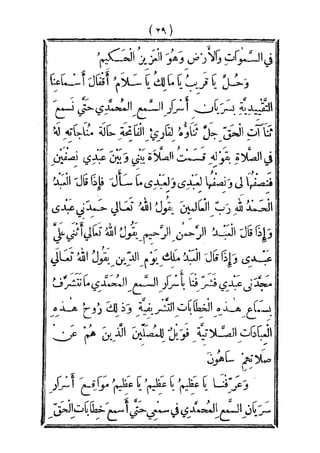 (٢٩)
في السَّمٰوَاتِ وَالْأَرْضِ وَهُوَ الْعَزِيزُ الْحَكِيمُ
وَحُلَّ يَا قَرِيبُ يَا مَالِكُ يَا سَلَامُ أَقْفَالَ أَسْمَاعِنَا
التَّقْيِيدِيَّةِ بِسَرَيَانِ أَسْرَارِ السَّمْعِ الْمُحَمَّدِي حَتَّى نَسْمَعَ
ثَنَاآتِ الْحَقِّ جَلَّ ثَنَاؤُهُ لِقَارِئِ الْفَاتِحَةِ حَالَةَ مُنَاجَاتِهِ لَهُ
فِي الصَّلَاةِ بِقَوْلِهِ قَسَمْتُ الصَّلَاةَ بَيْنِي وَبَيْنَ عَبْدِي نِصْفَيْنِ
فَنِصْفُهَا لِي وَنِصْفُهَا لِعَبْدِي وَلِعَبْدِي مَا سَأَلَ فَإِذَا قَالَ الْعَبْدُ
الْحَمْدُ لِلّٰهِ رَبِّ الْعَالَمِينَ يَقُولُ اللّٰهُ تَعَالَى حَمِدَنِي عَبْدِي
وَإِذَا قَالَ الْعَبْدُ الرَّحْمٰنِ الرَّحِيمِ يَقُولُ اللّٰهُ تَعَالَى أَثْنَى عَلَيَّ
عَبْدِي وَإِذَا قَالَ الْعَبْدُ مَلِكِ يَوْمِ الدِّينِ يَقُولُ اللّٰهُ تَعَالَى
مَجَّدَنِي عَبْدِي فَشَرِّفْنَا بِأَسْرَارِ السَّمْعِ الْمُحَمَّدِي مَا نَتَشَرَّفُ
بِسَمَاعِ هٰذِهِ الْخِطَابَاتِ التَّشْرِيفِيَّةِ وَذٰلِكَ رُوحُ هٰذِهِ
الْعِبَادَاتِ الصَّلَاتِيَّةِ فَوَيْلٌ لِلْمُصَلِّينَ الَّذِينَ هُمْ عَنْ
صَلَاتِهِمْ سَاهُونَ
وَعَرِّفْنَا يَا عَظِيمُ يَا عَظِيمُ يَا عَظِيمُ مَوَاقِعَ أَسْرَارِ
سَرَيَانِ السَّمْعِ الْمُحَمَّدِي فِي سَمْعِي حَتَّى أَسْمَعَ خِطَابَاتِ الْحَقِّ